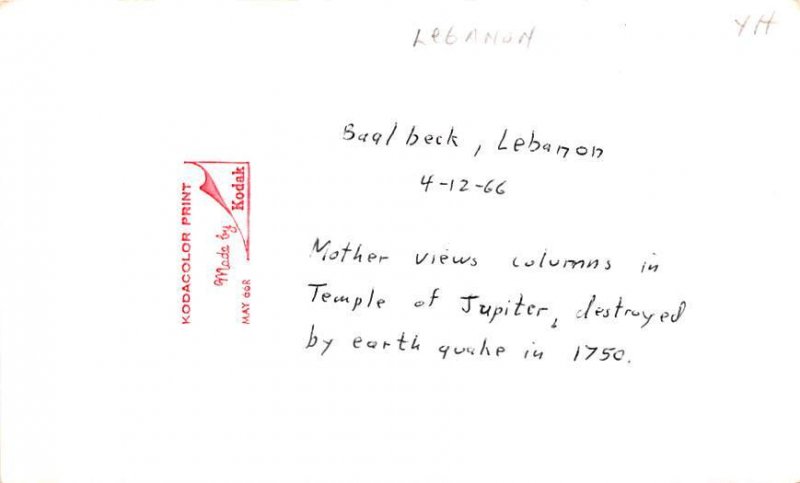 Lebanon
YH
Baalbeck, Lebanon
4-12-66
Mother views columns in
Temple of Jupiter, destroyed
by earth quake in 1750.
KODACOLOR PRINT
Made by
Kodak
MAY 66R